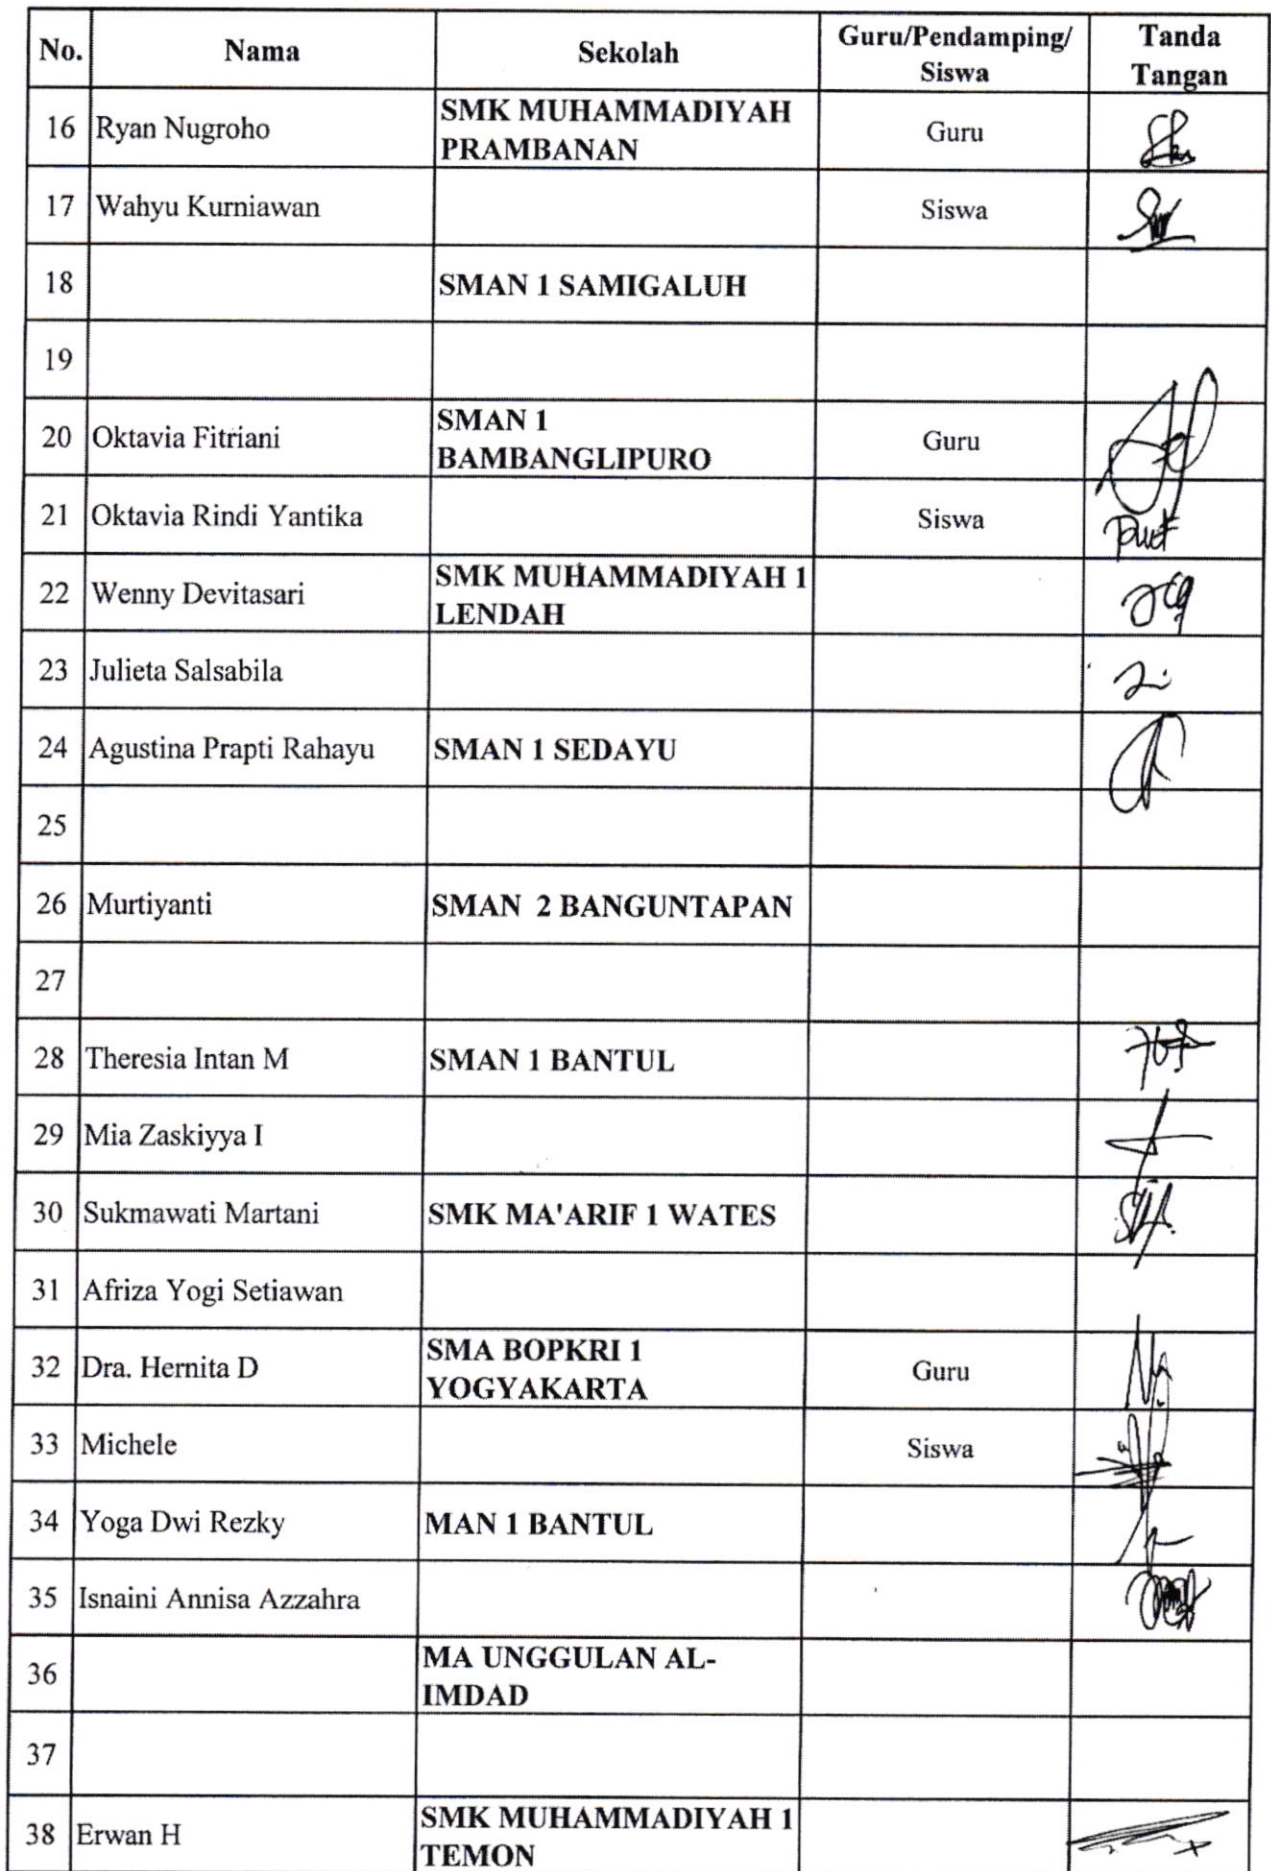 No. Nama Sekolah Guru/Pendamping/ Tanda
Siswa Tangan
16 Ryan Nugroho SMK MUHAMMADIYAH Guru
PRAMBANAN
17 Wahyu Kurniawan Siswa
18 SMAN 1 SAMIGALUH
19
20 Oktavia Fitriani SMAN 1 Guru
BAMBANGLIPURO
21 Oktavia Rindi Yantika Siswa
22 Wenny Devitasari SMK MUHAMMADIYAH 1
LENDAH
23 Julieta Salsabila
24 Agustina Prapti Rahayu SMAN 1 SEDAYU
25
26 Murtiyanti SMAN 2 BANGUNTAPAN
27
28 Theresia Intan M SMAN 1 BANTUL
29 Mia Zaskiyya I
30 Sukmawati Martani SMK MA'ARIF 1 WATES
31 Afriza Yogi Setiawan
32 Dra. Hernita D SMA BOPKRI 1 Guru
YOGYAKARTA
33 Michele Siswa
34 Yoga Dwi Rezky MAN 1 BANTUL
35 Isnaini Annisa Azzahra
36 MA UNGGULAN AL-
IMDAD
37
38 Erwan H SMK MUHAMMADIYAH 1
TEMON